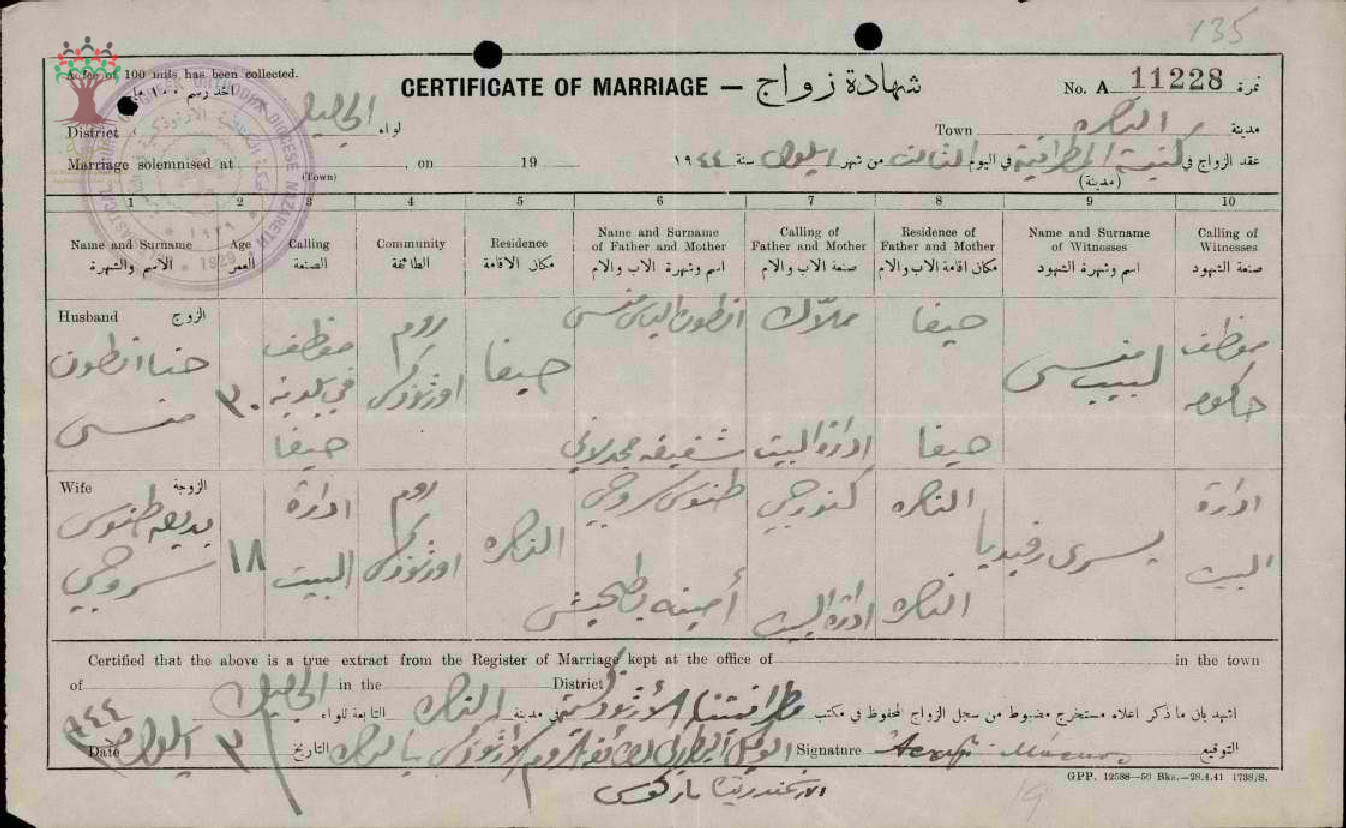 135
A fee of 100 mils has been collected.
CERTIFICATE OF MARRIAGE — شهادة زواج
No. A 11228 نمرة
District الجليل لواء
Town الناصرة مدينة
Marriage solemnised at , on 19
(Town)
عقد الزواج في كنيسة المطرانية في اليوم الثالث من شهر ايلول سنة ١٩٤٤
(مدينة)
GREEK ORTHODOX DIOCESE NAZARETH
١٩٢٩
1929
1 2 3 4 5 6 7 8 9 10
Name and Surname
الاسم والشهرة
Age
العمر
Calling
الصنعة
Community
الطائفة
Residence
مكان الاقامة
Name and Surname
of Father and Mother
اسم وشهرة الاب والام
Calling of
Father and Mother
صنعة الاب والام
Residence of
Father and Mother
مكان اقامة الاب والام
Name and Surname
of Witnesses
اسم وشهرة الشهود
Calling of
Witnesses
صنعة الشهود
Husband الزوج
حنا انطون
منسى
٣٠
موظف
في بلدية
حيفا
روم
اورثوذكس
حيفا
انطون الياس منسى
شفيقه مجدلاني
ملاّك
ادارة البيت
حيفا
حيفا
لبيب منسى
موظف
حكومة
Wife الزوجة
بديعه طنوس
سروجي
١٨
ادارة
البيت
روم
اورثوذكس
الناصرة
طنوس سروجي
أمينه
كندرجي
ادارة البيت
الناصره
الناصره
يسرى رفيديا
ادارة
البيت
Certified that the above is a true extract from the Register of Marriage kept at the office of in the town
of in the District
اشهد بان ما ذكر اعلاه مستخرج مضبوط من سجل الزواج المحفوظ في مكتب مطرانيتنا الأرثوذكسية في مدينة الناصرة التابعة للواء الجليل
Date ٣ ايلول ٩٤٤ التاريخ
الوكيل البطريركي لطائفة الروم الارثوذكس بالناصرة
Signature التوقيع
الارشمندريت ماركوس
GPP. 12588—50 Bks.—28.4.41 1738/S.
19